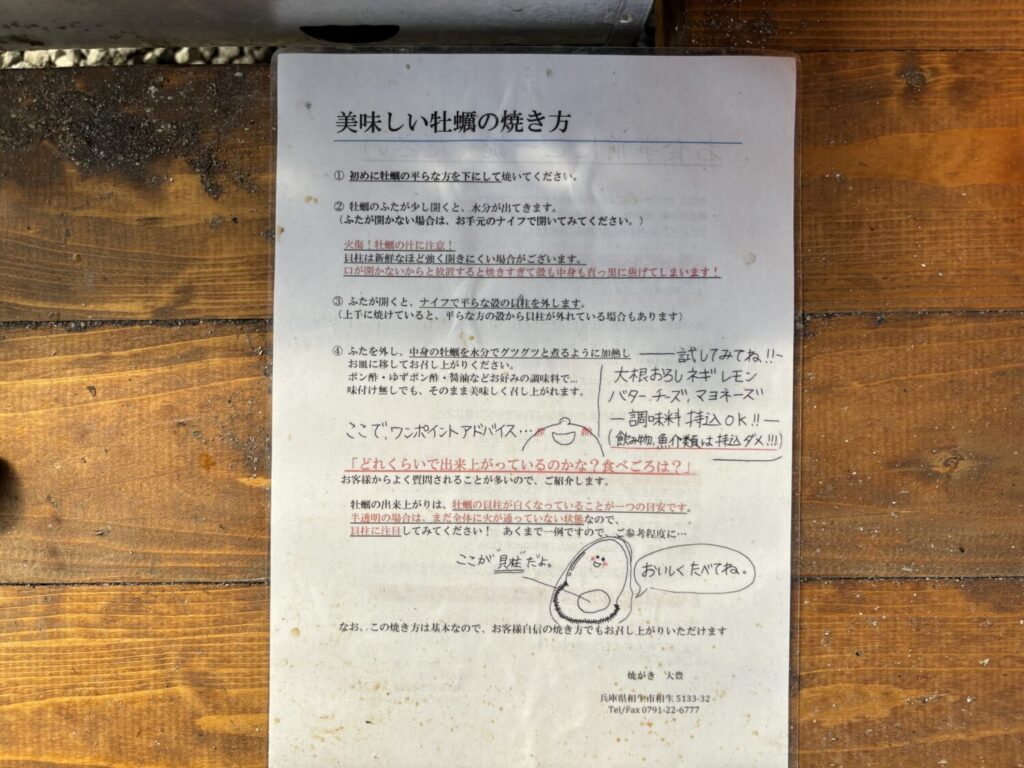 美味しい牡蠣の焼き方
① 初めに牡蠣の平らな方を下にして焼いてください。
② 牡蠣のふたが少し開くと、水分が出てきます。
(ふたが開かない場合は、お手元のナイフで開いてみてください。)
火傷!牡蠣の汁に注意!
貝柱は新鮮なほど強く開きにくい場合がございます。
口が開かないからと放置すると焼きすぎて殻も中身も真っ黒に焦げてしまいます!
③ ふたが開くと、ナイフで平らな殻の貝柱を外します。
(上手に焼けていると、平らな方の殻から貝柱が外れている場合もあります)
④ ふたを外し、中身の牡蠣を水分でグツグツと煮るように加熱し
お皿に移してお召し上がりください。
ポン酢・ゆずポン酢・醤油などお好みの調味料で…
味付け無しでも、そのまま美味しく召し上がれます。
試してみてね!!
大根おろし ネギ レモン
バター、チーズ、マヨネーズ
調味料 持込OK!!
(飲み物、魚介類は持込ダメ!!!)
ここで、ワンポイントアドバイス…
「どれくらいで出来上がっているのかな?食べごろは?」
お客様からよく質問されることが多いので、ご紹介します。
牡蠣の出来上がりは、牡蠣の貝柱が白くなっていることが一つの目安です。
半透明の場合は、まだ全体に火が通っていない状態なので、
貝柱に注目してみてください! あくまで一例ですので、ご参考程度に…
ここが"貝柱"だよ。
おいしくたべてね。
なお、、この焼き方は基本なので、お客様自信の焼き方でもお召し上がりいただけます
焼がき 大豊
兵庫県相生市相生 5133-32
Tel/Fax 0791-22-6777